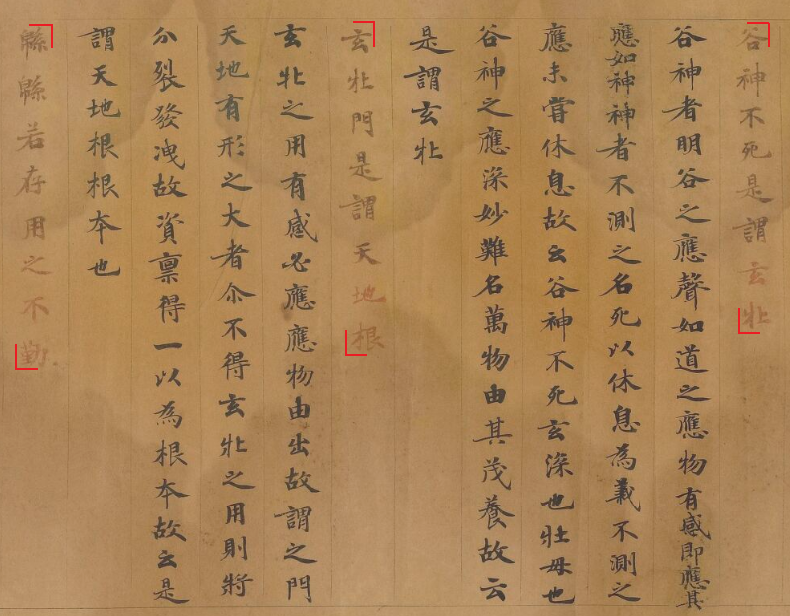 谷神不死是謂玄牝
谷神者明谷之應聲如道之應物有感即應其
應如神神者不測之名死以休息為義不測之
應未嘗休息故云谷神不死玄深也牝母也
谷神之應深妙難名萬物由其茂養故云
是謂玄牝
玄牝門是謂天地根
玄牝之用有感必應應物由出故謂之門
天地有形之大者尒不得玄牝之用則將
分裂發洩故資禀得一以為根本故云是
謂天地根根本也
緜緜若存用之不勤